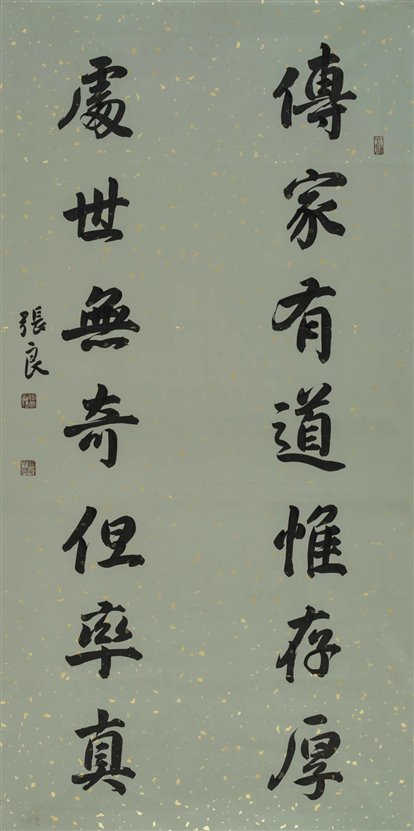 傳家有道惟存厚
處世無奇但率真
張良